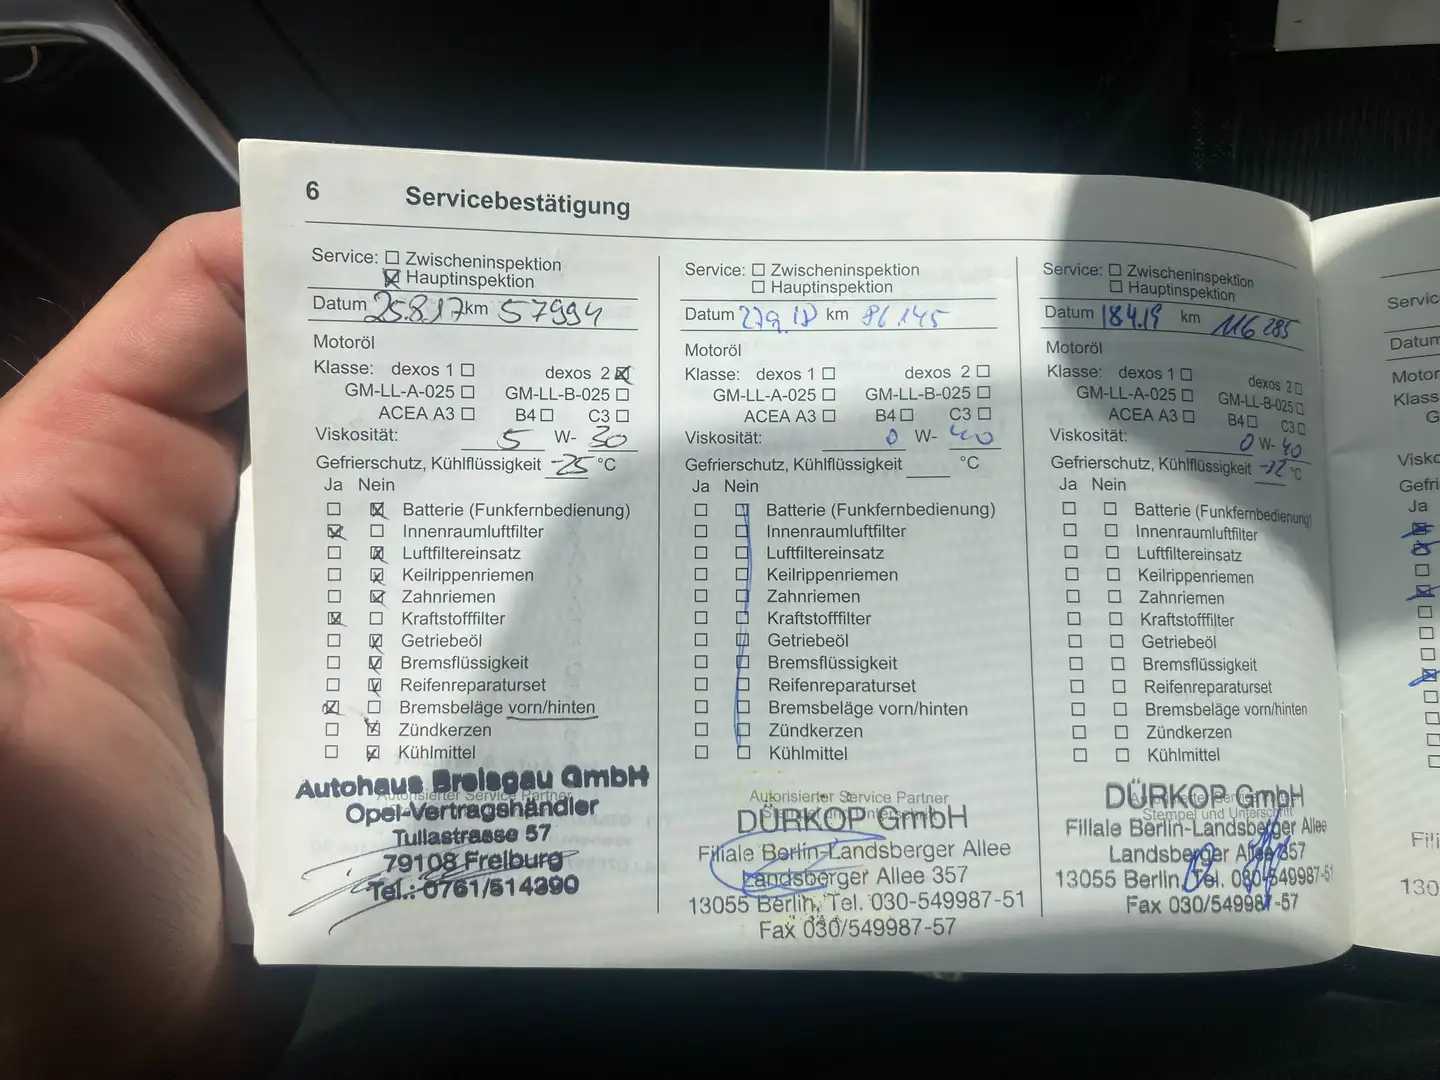 6 Servicebestätigung
Service: Zwischeninspektion
Hauptinspektion
Datum 25.8.17 km 57994
Motoröl
Klasse: dexos 1 dexos 2
GM-LL-A-025 GM-LL-B-025
ACEA A3 B4 C3
Viskosität: 5 W- 30
Gefrierschutz, Kühlflüssigkeit -25 °C
Ja Nein
Batterie (Funkfernbedienung)
Innenraumluftfilter
Luftfiltereinsatz
Keilrippenriemen
Zahnriemen
Kraftstofffilter
Getriebeöl
Bremsflüssigkeit
Reifenreparaturset
Bremsbeläge vorn/hinten
Zündkerzen
Kühlmittel
Autorisierter Service Partner
Autohaus Breisgau GmbH
Opel-Vertragshändler
Tullastrasse 57
79108 Freiburg
Tel.: 0761/514390
Service: Zwischeninspektion
Hauptinspektion
Datum 27.9.18 km 86.145
Motoröl
Klasse: dexos 1 dexos 2
GM-LL-A-025 GM-LL-B-025
ACEA A3 B4 C3
Viskosität: 0 W- 40
Gefrierschutz, Kühlflüssigkeit °C
Ja Nein
Batterie (Funkfernbedienung)
Innenraumluftfilter
Luftfiltereinsatz
Keilrippenriemen
Zahnriemen
Kraftstofffilter
Getriebeöl
Bremsflüssigkeit
Reifenreparaturset
Bremsbeläge vorn/hinten
Zündkerzen
Kühlmittel
Autorisierter Service Partner
DÜRKOP GmbH
Filiale Berlin-Landsberger Allee
Landsberger Allee 357
13055 Berlin, Tel. 030-549987-51
Fax 030/549987-57
Service: Zwischeninspektion
Hauptinspektion
Datum 18.4.19 km 116 285
Motoröl
Klasse: dexos 1 dexos 2
GM-LL-A-025 GM-LL-B-025
ACEA A3 B4 C3
Viskosität: 0 W- 40
Gefrierschutz, Kühlflüssigkeit -12 °C
Ja Nein
Batterie (Funkfernbedienung)
Innenraumluftfilter
Luftfiltereinsatz
Keilrippenriemen
Zahnriemen
Kraftstofffilter
Getriebeöl
Bremsflüssigkeit
Reifenreparaturset
Bremsbeläge vorn/hinten
Zündkerzen
Kühlmittel
DÜRKOP GmbH
Stempel und Unterschrift
Filiale Berlin-Landsberger Allee
Landsberger Allee 357
13055 Berlin, Tel. 030-549987-51
Fax 030/549987-57
Servic
Datum
Motor
Klass
G
Visko
Gefri
Ja
Fili
130